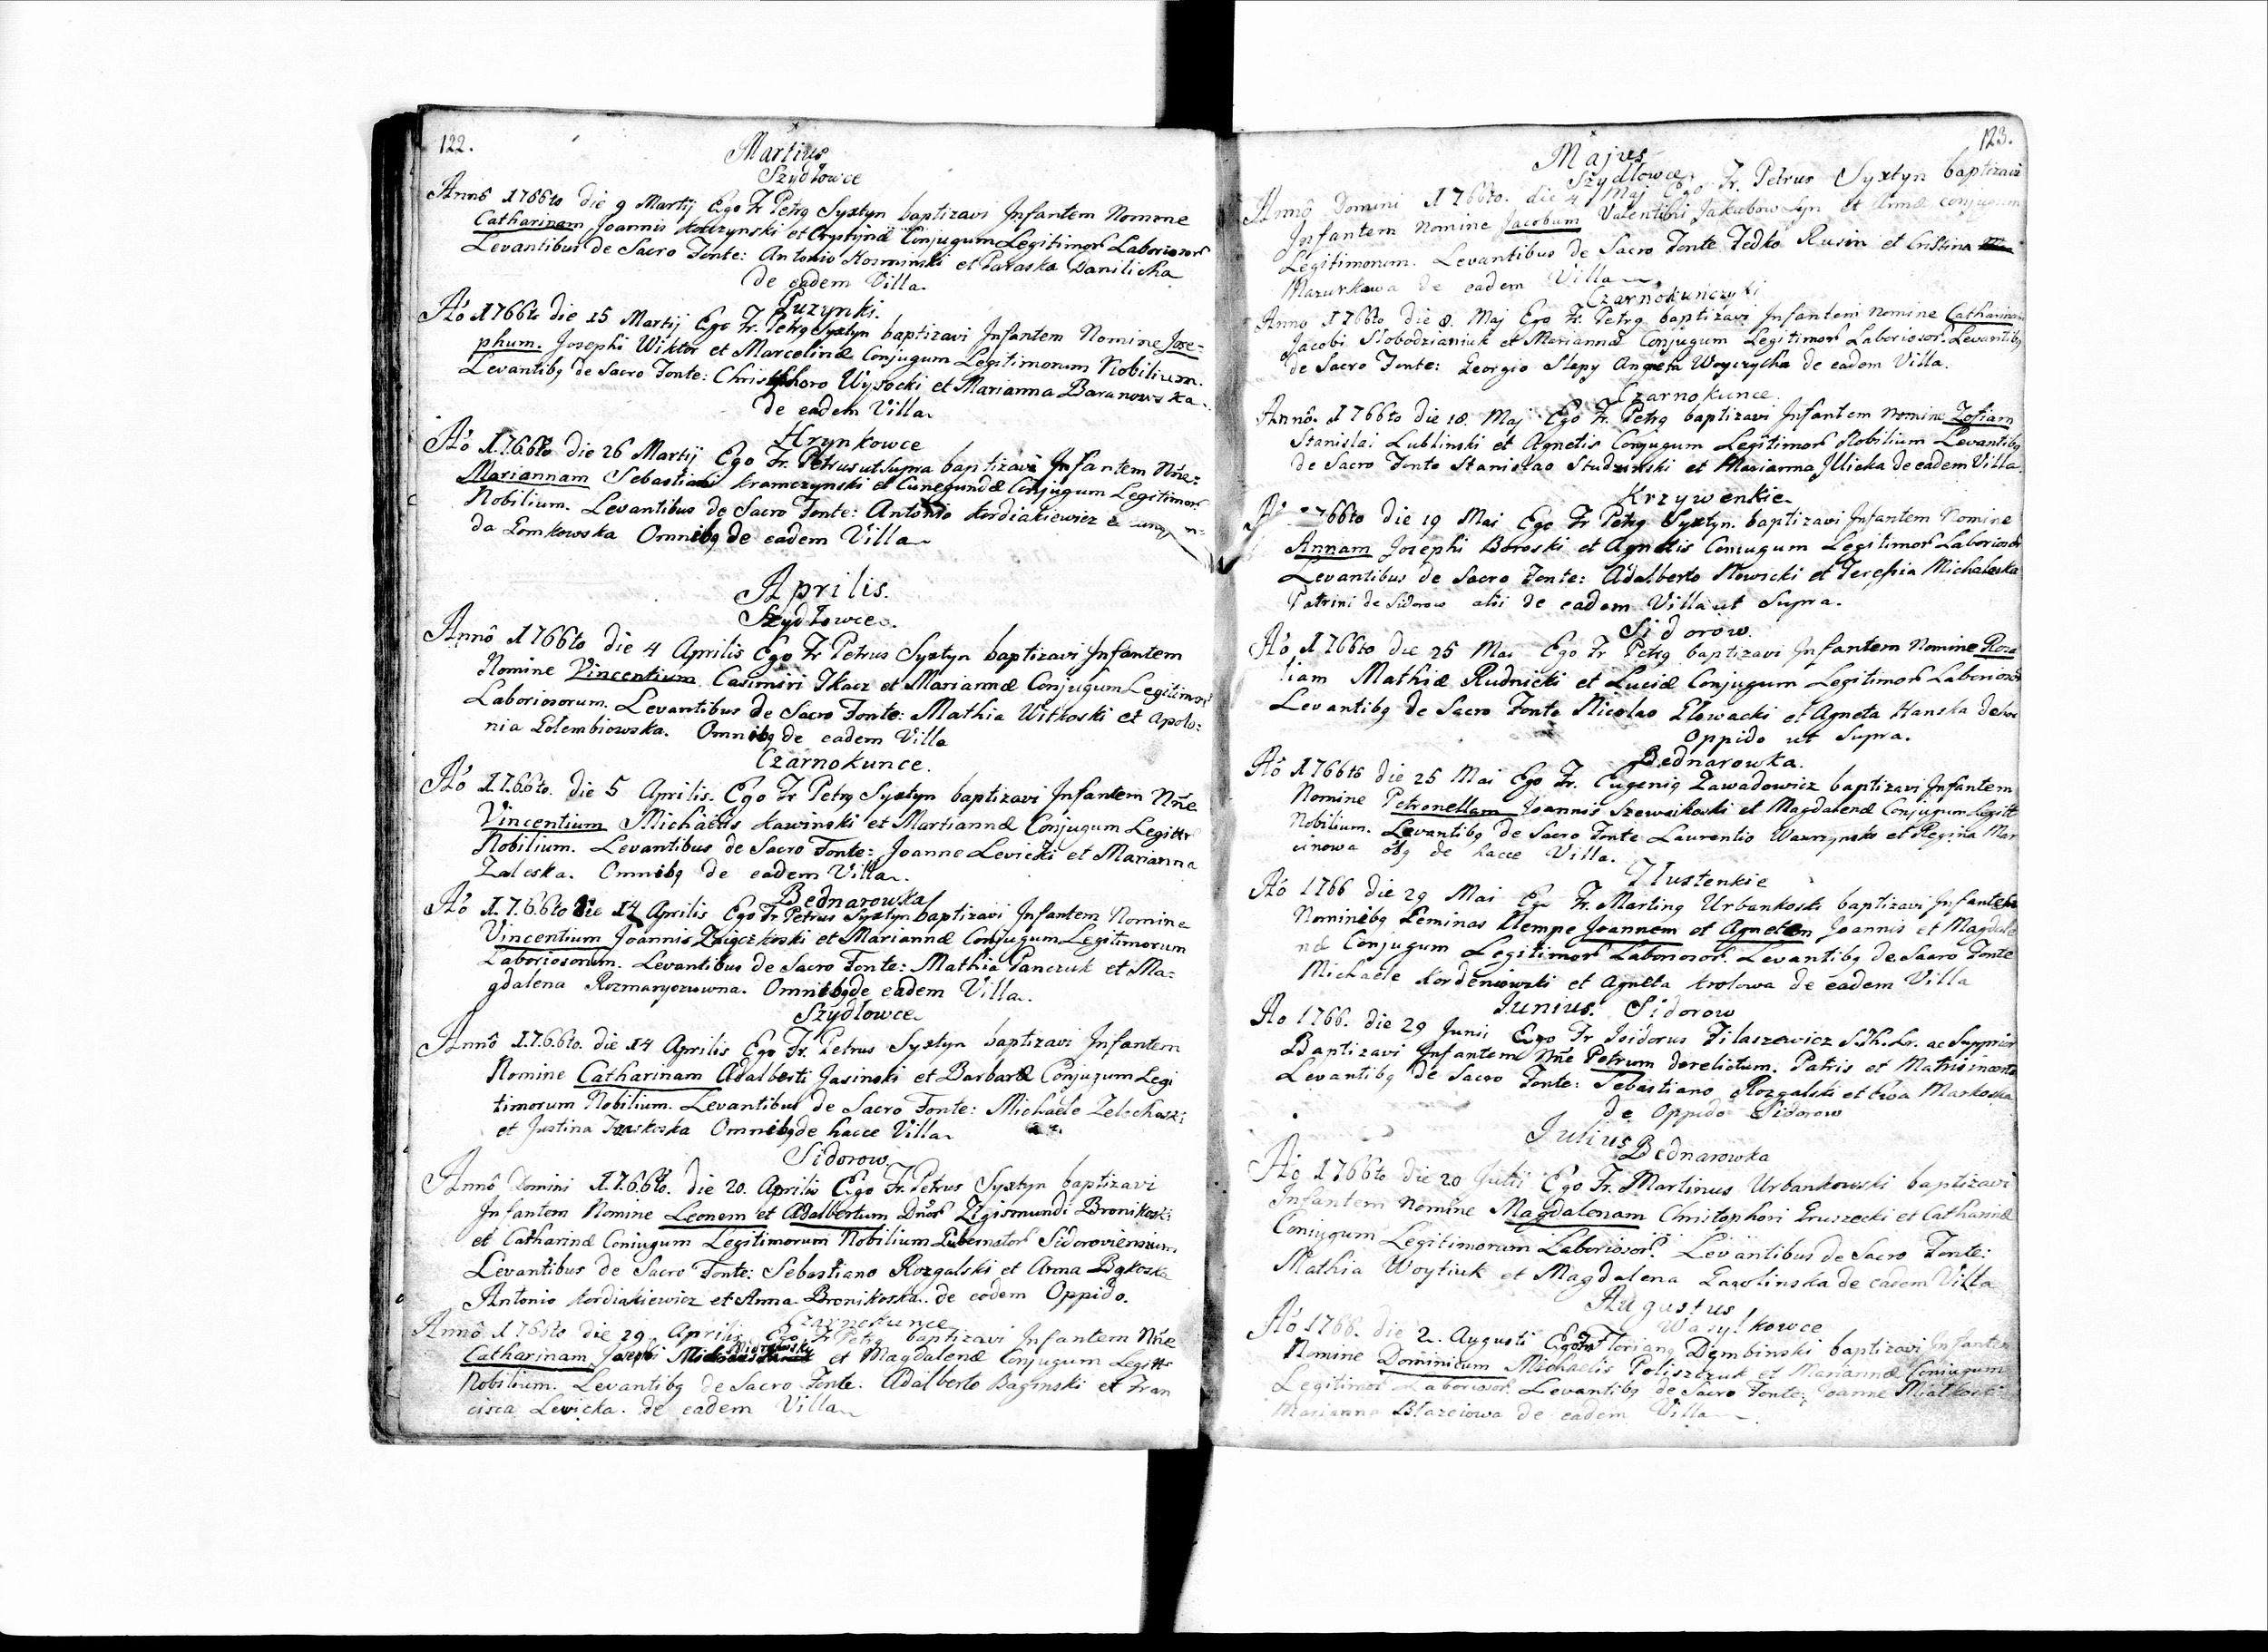 122.
Martius
Szydłowce
Annô 1766to die 9 Martij Ego Fr Petrq Syxtyn baptizavi Infantem Nomine
Catharinam Joannis et Crystynæ Conjugum Legitimor Laboriosor
Levantibus de Sacro Fonte: Antonio Kosminski et Paraska Danilicha
de eadem Villa.
Puzynki.
Aô 1766to die 15 Martij Ego Fr. Petrq Syxtyn baptizavi Infantem Nomine Jose=
phum. Josephi Wiktor et Marcelinæ Conjugum Legitimorum Nobilium.
Levantibq de Sacro Fonte: Christophoro Wysocki et Marianna Baranowska.
de eadem Villa
Hrynkowce
Aô 1766to die 26 Martij Ego Fr. Petrus ut Supra baptizavi Infantem Nñe=
Mariannam Sebastiani Kramczynski et Cunegundæ Conjugum Legitimor
Nobilium. Levantibus de Sacro Fonte: Antonio Kordiakiewicz
da Łomkowska Omnibq de eadem Villa
Aprilis.
Szydłowce.
Annô 1766to die 4 Aprilis Ego Fr Petrus Syxtyn baptizavi Infantem
Nomine Vincentium Casimiri Tkacz et Mariannæ Conjugum Legitimor
Laboriosorum. Levantibus de Sacro Fonte: Mathia Witkoski et Apolo:
nia Golembiowska. Omnibq de eadem Villa
Czarnokunce.
Aô 1766to. die 5 Aprilis. Ego Fr Petrq Syxtyn baptizavi Infantem Nñe
Vincentium Michaelis Kawinski et Mariannæ Conjugum Legittr
Nobilium. Levantibus de Sacro Fonte: Joanne Levicki et Marianna
Zaleska. Omnibq de eadem Villa.
Bednarowka
Aô 1766to die 14 Aprilis Ego Fr Petrus Syxtyn baptizavi Infantem Nomine
Vincentium Joannis Zaiączkoski et Mariannæ Conjugum Legitimorum
Laboriosorum. Levantibus de Sacro Fonte: Mathia Panczuk et Ma=
gdalena Rozmaryczuwna. Omnibq de eadem Villa.
Szydłowce
Annô 1766to. die 14 Aprilis Ego Fr. Petrus Syxtyn baptizavi Infantem
Nomine Catharinam Adalberti Jasinski et Barbaræ Conjugum Legi
timorum Nobilium. Levantibus de Sacro Fonte: Michaele Zelechoski
et Justina Omnibq de hacce Villa
Sidorow.
Annô Domini 1766to. die 20. Aprilis Ego Fr. Petrus Syxtyn baptizavi
Infantem Nomine Leonem et Adalbertum Dnor Zigismundi Bronikoski
et Catharinæ Coniugum Legitimorum Nobilium Gubernator Sidoroviensium
Levantibus de Sacro Fonte: Sebastiano Rozgalski et Anna Bąkoska
Antonio Kordiakiewicz et Anna Bronikoska. de eodem Oppido.
Czarnokunce
Annô 1766to die 29 Aprilis Ego Fr Petrq baptizavi Infantem Nñe
Catharinam Josephi et Magdalenæ Conjugum Legittr
Nobilium. Levantibq de Sacro Fonte. Adalberto Baginski et Fran
cisca Levicka. de eadem Villa
123.
Majus
Szydłowce
Annô Domini 1766to. die 4 Maj Ego Fr. Petrus Syxtyn baptizavi
Infantem Nomine Jacobum Valentini Jakubow Syn et Annæ conjugum
Legitimorum. Levantibus de Sacro Fonte Fedko Rusin et Cristina
Mazurkawa de eadem Villa
Czarnokunczyki
Anno 1766to die 8. Maj Ego Fr. Petrq baptizavi Infantem Nomine Catharinam
Jacobi Slobodzianiuk et Mariannæ Conjugum Legitimor Laboriosor. Levantibq
de Sacro Fonte: Georgio Slepy Agneta Woyczycha de eadem Villa.
Czarnokunce.
Annô. 1766to die 18. Maj Ego Fr. Petrq baptizavi Infantem Nomine Zofiam
Stanislai Lublinski et Agnetis Conjugum Legitimor Nobilium Levantibq
de Sacro Fonte Stanislao Studzinski et Marianna Jlicka de eadem Villa.
Krzywenkie
1766to die 19 Mai Ego Fr Petrq Syxtyn. baptizavi Infantem Nomine
Annam Josephi Boroski et Agnetis Coniugum Legitimor Laboriosor
Levantibus de Sacro Fonte: Adalberto Nowicki et Teressia Michaleska
Patrini de Sidorow alii de eadem Villa ut Supra.
Sidorow.
Aô 1766to die 25 Mai Ego Fr Petrq baptizavi Infantem Nomine Rosa
liam Mathiæ Rudnicki et Luciæ Conjugum Legitimor Laboriosor
Levantibq de Sacro Fonte Nicolao Głowacki et Agneta Hanska de hoc
Oppido ut Supra.
Bednarowka.
Aô 1766to die 25 Mai Ego Fr. Eugeniq Zawadowicz baptizavi Infantem
Nomine Petronellam Joannis Szewcikoski et Magdalenæ Conjugum Legitt
Nobilium. Levantibq de Sacro Fonte Laurentio Wawrynsko et Regina Mar
cinowa oĩbq de hacce Villa.
Tłustenkie
Aô 1766 die 29 Mai Ego Fr. Martinq Urbankoski baptizavi Infantem
Nominibq Geminas Nempe Joannem et Agnetem Joannis et Magdale
næ Conjugum Legitimor Laboriosor. Levantibq de Sacro Fonte
Michaele Kordeniowski et Agneta Krolowa de eadem Villa
Junius. Sidorow
Ao 1766. die 29 Junii Ego Fr Isidorus Filaszewicz S.Th.Lr. ac Supprior
Baptizavi Infantem Nñe Petrum derelictum. Patris et Matris incerta
Levantibq de Sacro Fonte: Sebastiano Rozgalski et Ewa Markoska
de Oppido Sidorow
Julius
Bednarowka
Aô 1766to die 20 Julii Ego Fr. Martinus Urbankowski baptizavi
Infantem Nomine Magdalenam Christophori Gruszecki et Catharinæ
Coniugum Legitimorum Laboriosor. Levantibus de Sacro Fonte:
Mathia Woytiuk et Magdalena Gawlinska de eadem Villa
Augustus
Wasylkowce
Aô 1766. die 2. Augusti Ego Fr Florianq Dembinski baptizavi Infantem
Nomine Dominicum Michaelis Poliszczuk et Mariannæ Coniugum
Legitimor Laboriosor. Levantibq de Sacro Fonte: Joanne Miałkoski
Marianna Błazeiowa de eadem Villa